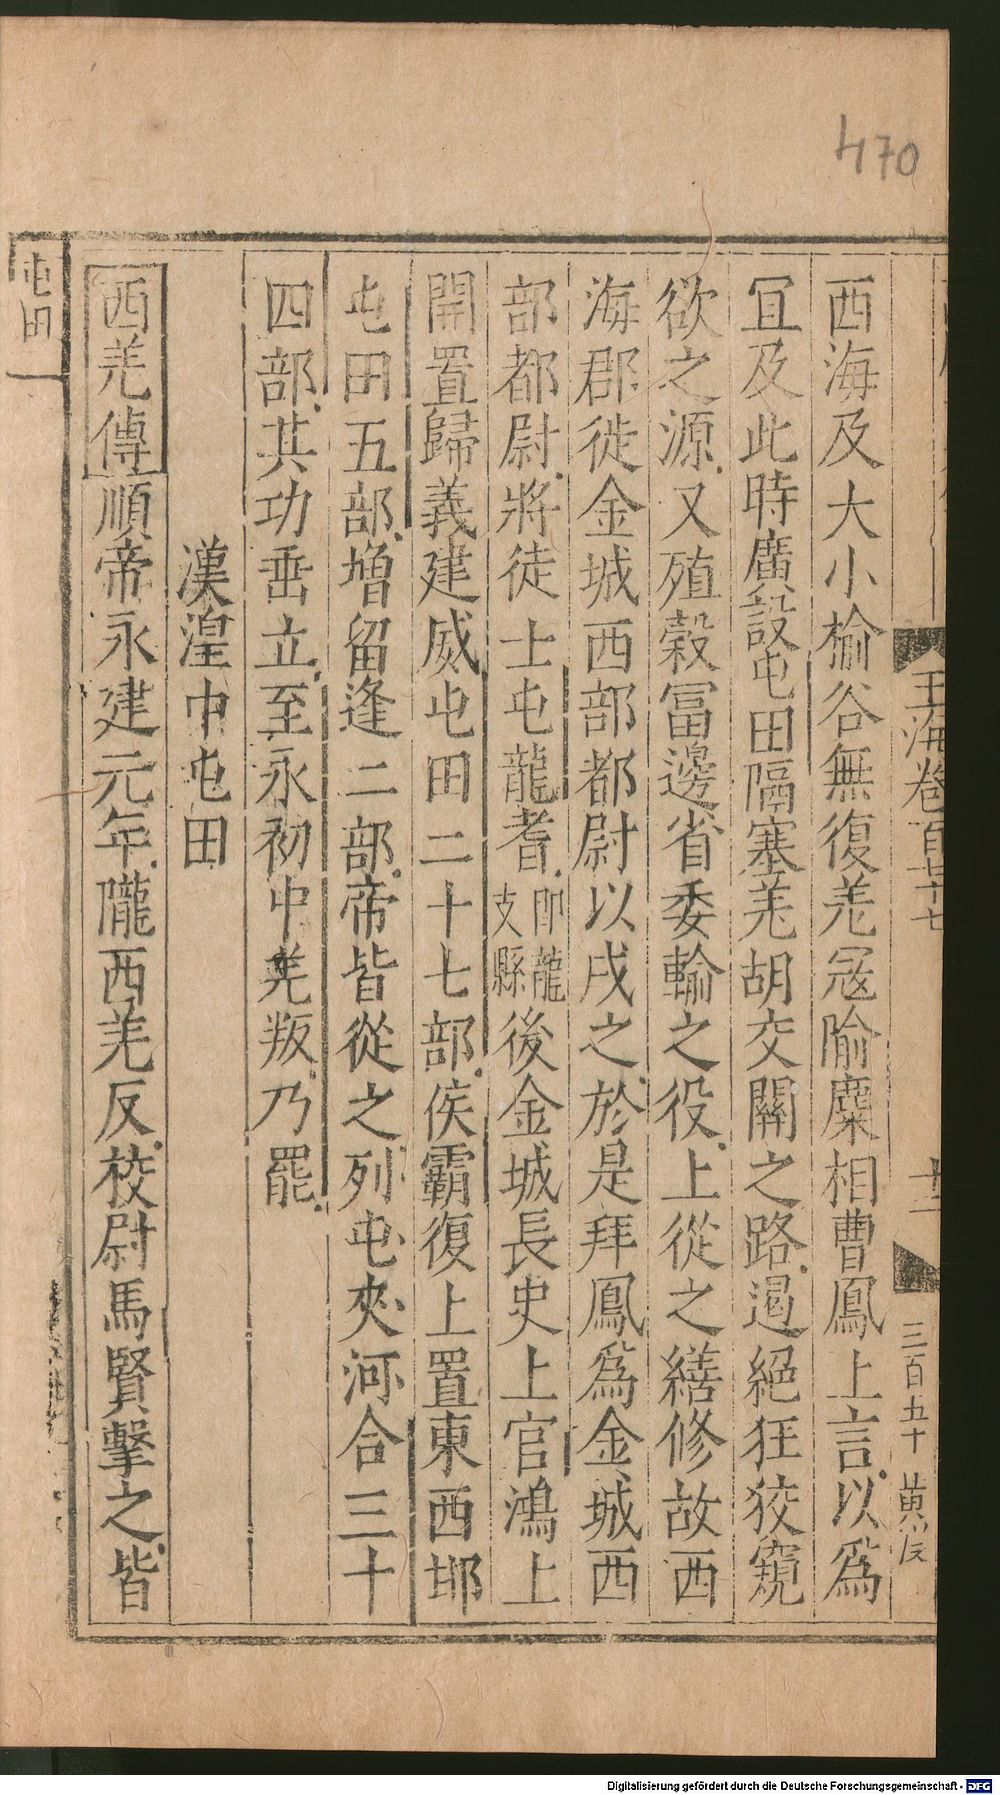 470
玉海卷百七十七
十二
三百五十
西海及大小榆谷無復羌寇隃麋相曹鳳上言以爲
冝及此時廣設屯田隔塞羌胡交關之路遏絕狂狡窺
欲之源又殖穀冨邊省委輸之役上從之繕修故西
海郡徙金城西部都尉以戍之於是拜鳳爲金城西
部都尉將徒士屯龍耆即龍支縣後金城長史上官鴻上
開置歸義建威屯田二十七部侯霸復上置東西邯
屯田五部增留逢二部帝皆從之列屯夾河合三十
四部其功垂立至永初中羌叛乃罷
漢湟中屯田
西羌傳順帝永建元年隴西羌反校尉馬賢擊之皆
屯田
Digitalisierung gefördert durch die Deutsche Forschungsgemeinschaft - DFG